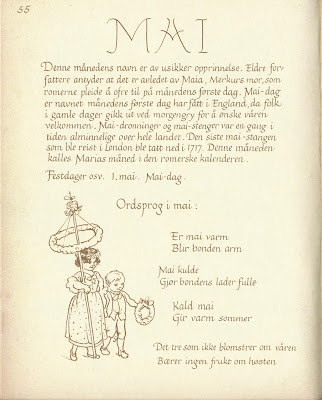 55
MAI
Denne månedens navn er av usikker opprinnelse. Eldre for-
fattere antyder at det er avledet av Maia, Merkurs mor, som
romerne pleide å ofre til på månedens første dag. Mai-dag
er navnet månedens første dag har fått i England, da folk
i gamle dager gikk ut ved morgengry for å ønske våren
velkommen. Mai-dronninger og mai-stenger var en gang i
tiden alminnelige over hele landet. Den siste mai-stangen
som ble reist i London ble tatt ned i 1717. Denne måneden
kalles Marias måned i den romerske kalenderen.
Festdager osv. 1. mai. Mai-dag.
Ordsprog i mai:
Er mai varm
Blir bonden arm
Mai kulde
Gjør bondens lader fulle
Kald mai
Gir varm sommer
Det tre som ikke blomstrer om våren
Bærer ingen frukt om høsten